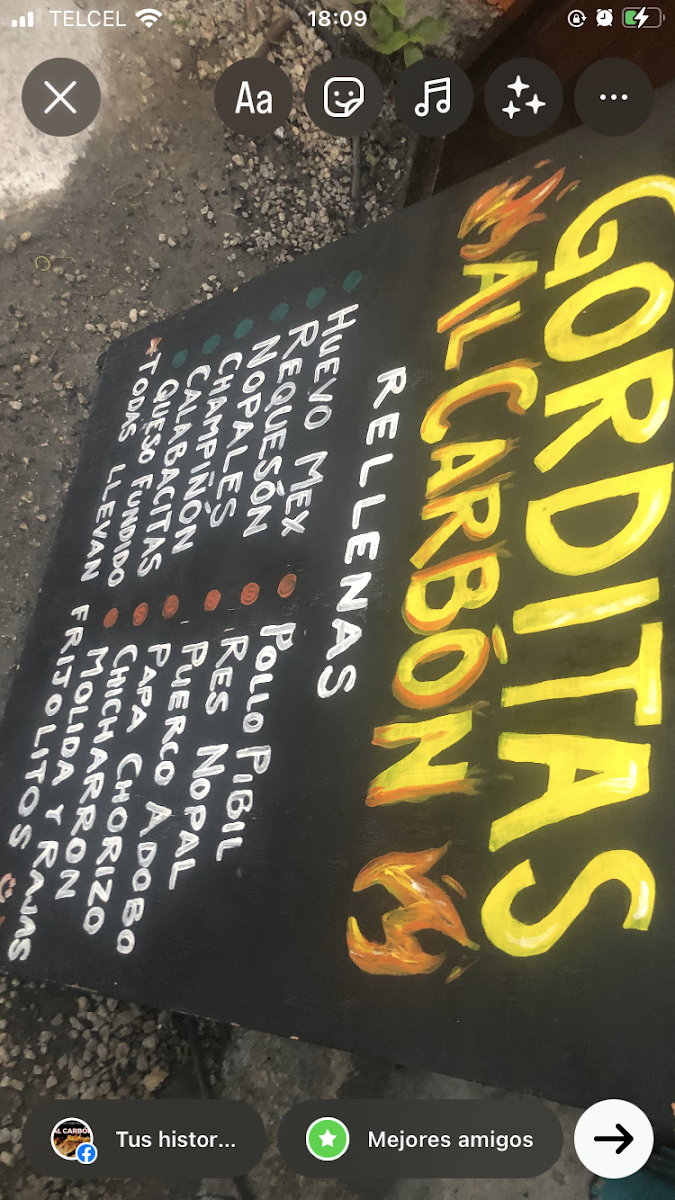 TELCEL
18:09
Aa
GORDITAS
AL CARBÓN
RELLENAS
HUEVO MEX
REQUESÓN
NOPALES
CHAMPIÑÓN
CALABACITAS
QUESO FUNDIDO
POLLO PIBIL
RES NOPAL
PUERCO ADOBO
PAPA CHORIZO
CHICHARRON
MOLIDA Y RAJAS
TODAS LLEVAN FRITOLITOS
Tus histor...
AL CARBÓ
Mejores amigos